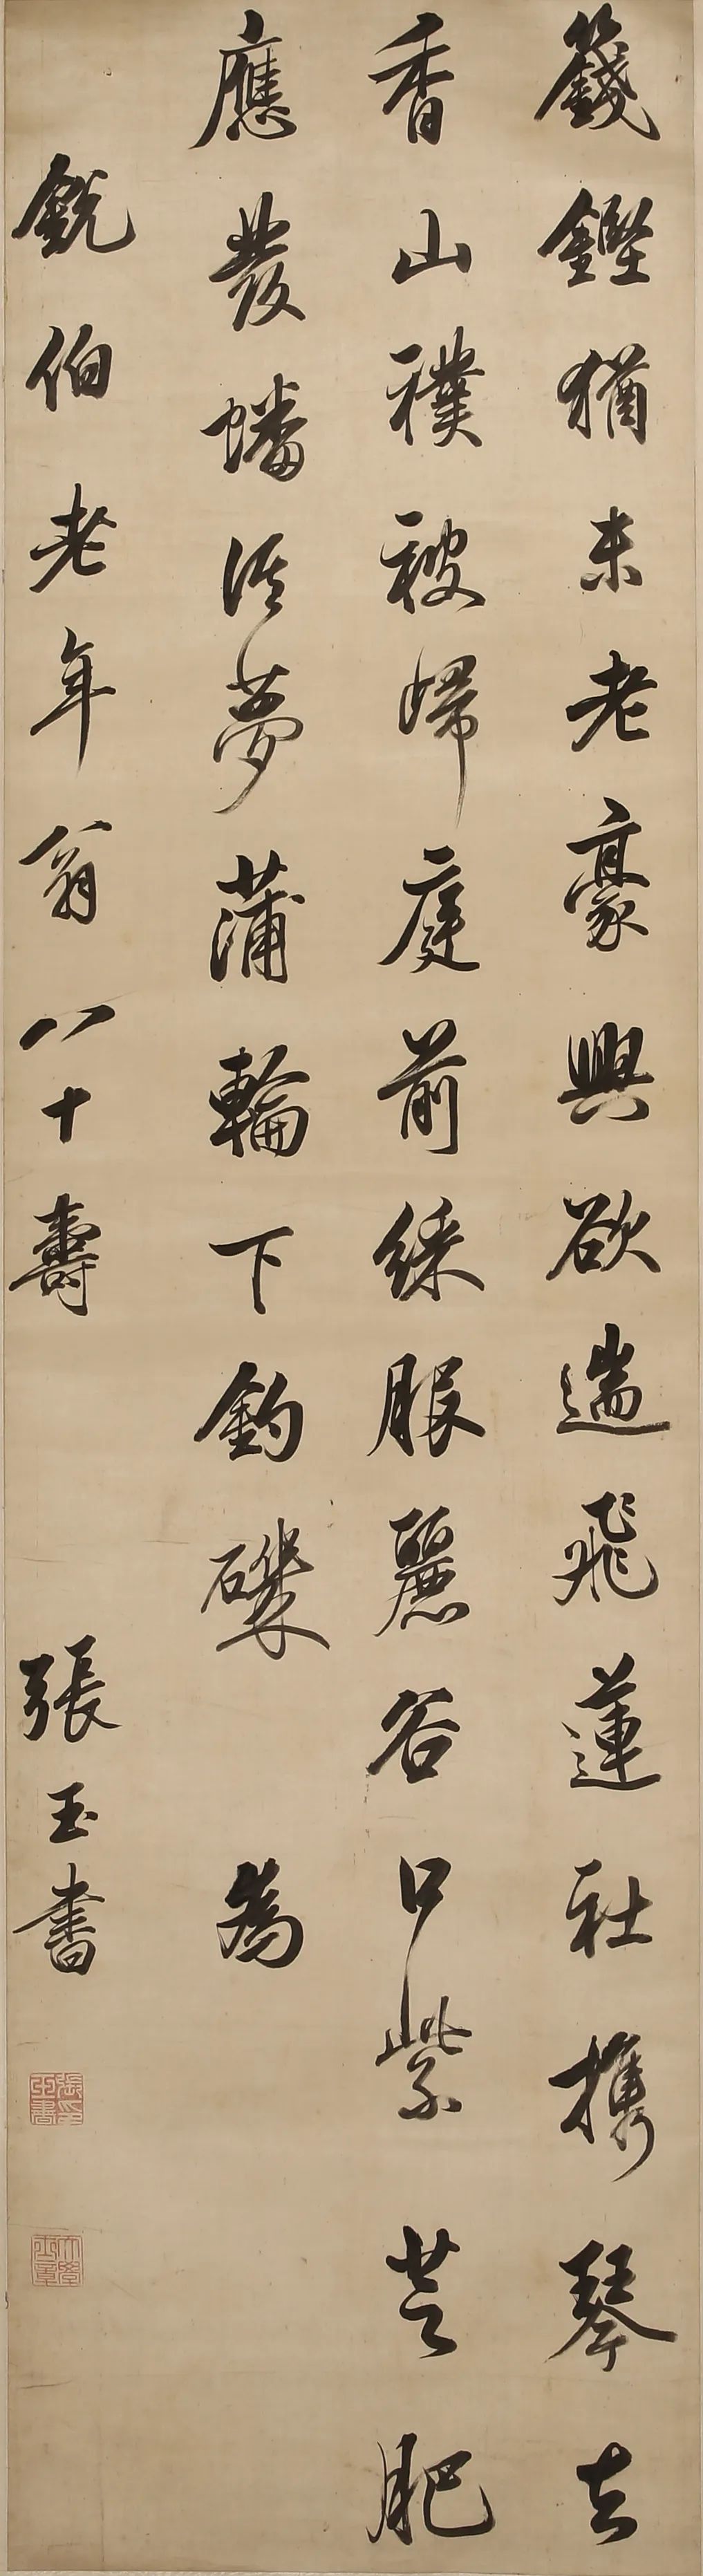 籛鏗猶未老豪興欲遄飛蓮社携琴去
香山襆被歸庭前綵服麗谷口紫芝肥
應發蟠溪夢蒲輪下釣磯 為
銳伯老年翁八十壽 張玉書
張印玉書
大學士章